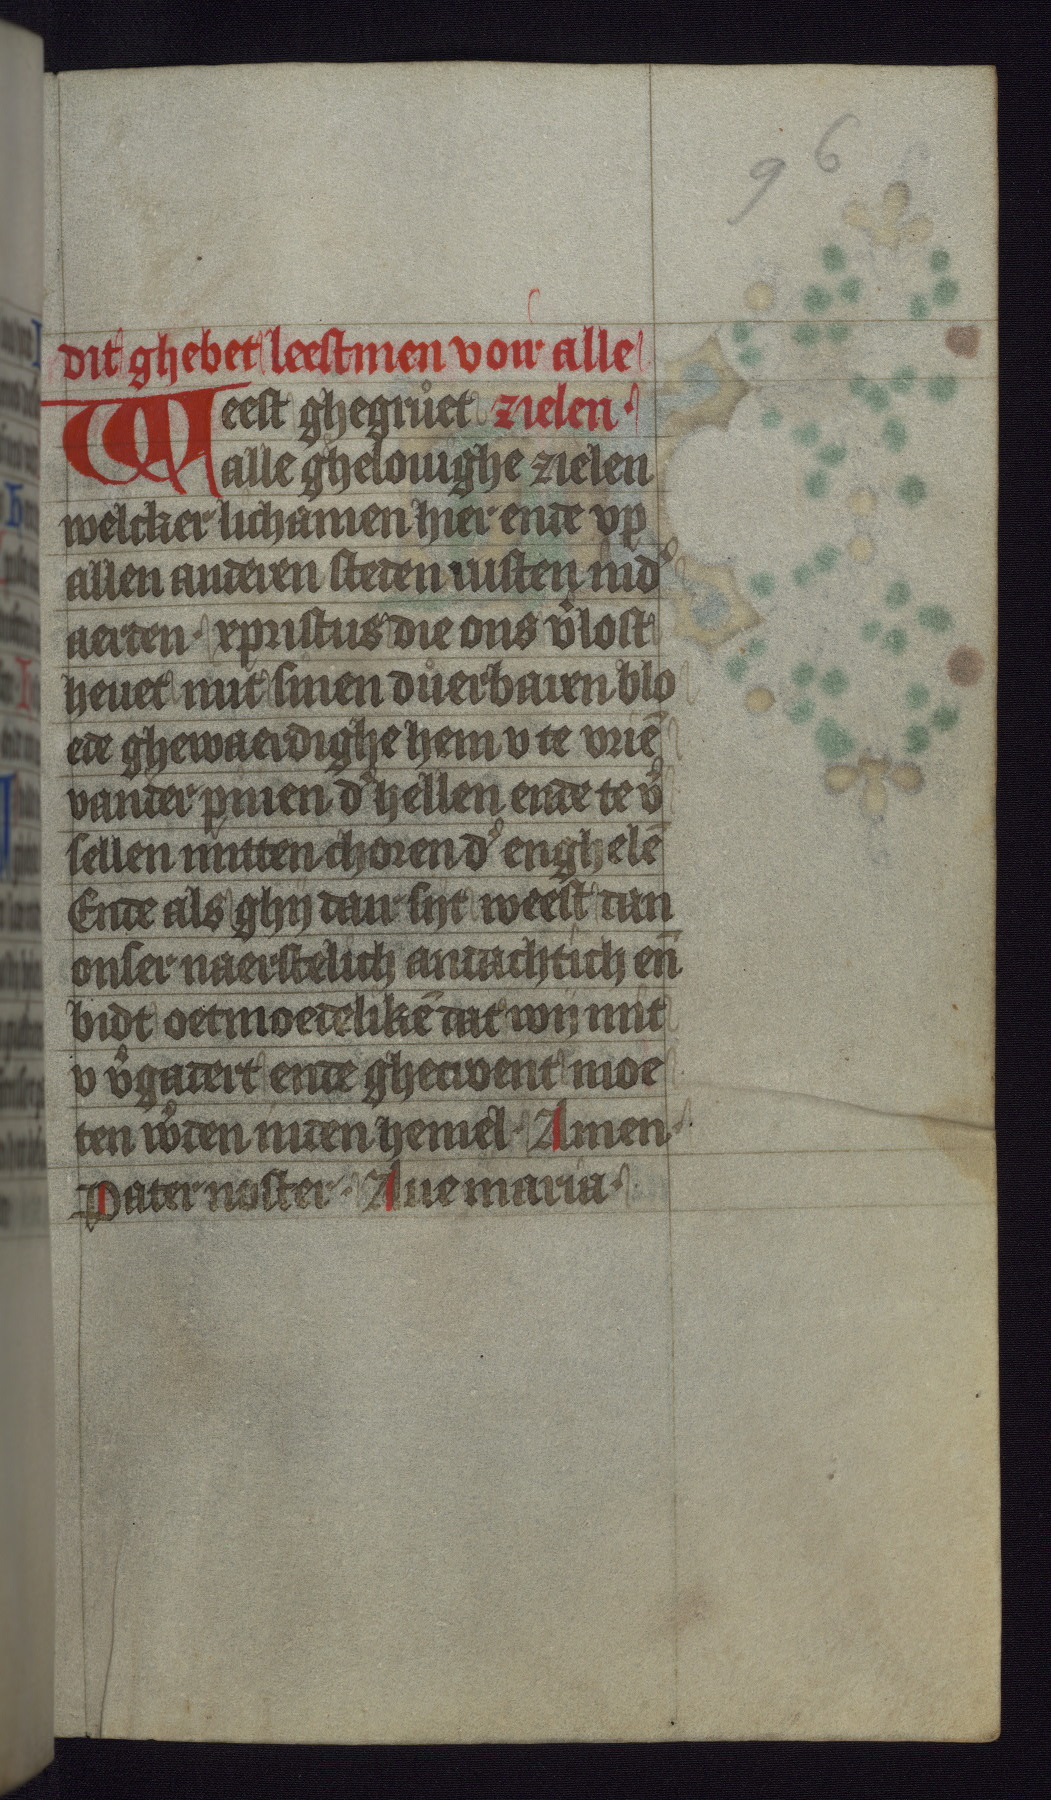 96
dit ghebet leestmen voir alle
Weest ghegruͦet zielen·
alle ghelouighe zielen
welcker lichamen hier ende vp
allen anderen steden rusten in dʾ
aerden· xpristus die ons vʾlost
heuet mit sinen duͦerbaren blo
ede ghewaerdighe hem v te vriē
vander pinen dʾ hellen ende te vʾ
sellen mitten choren dʾ enghelē
Ende als ghij daer sijt weest dan
onser naerstelich andachtich eñ
bidt oetmoedelikē dat wij mit
v vʾgadert ende ghecroent moe
ten wʾden in den hemel· Amen·
Pater noster· Aue maria·